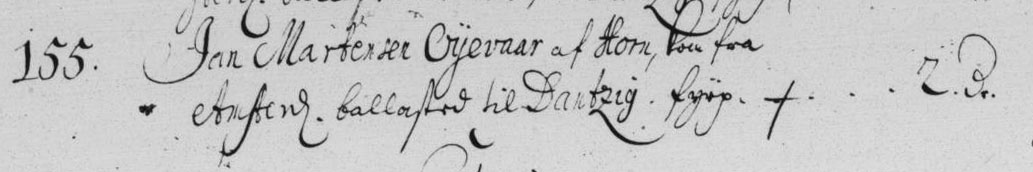 155. Jan Martensen Oÿevaar af Horn, kom fra
Amsterd. ballasted til Dantzig. fyrp. + . . . 2. Dr.